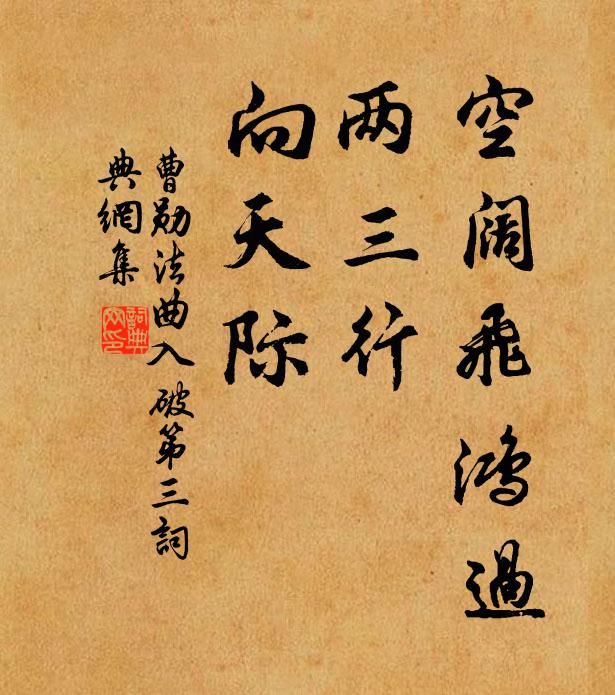 空阔飞鸿過
两三行
向天际
曹勋法曲入破第三詞
典網集
詞典
网印